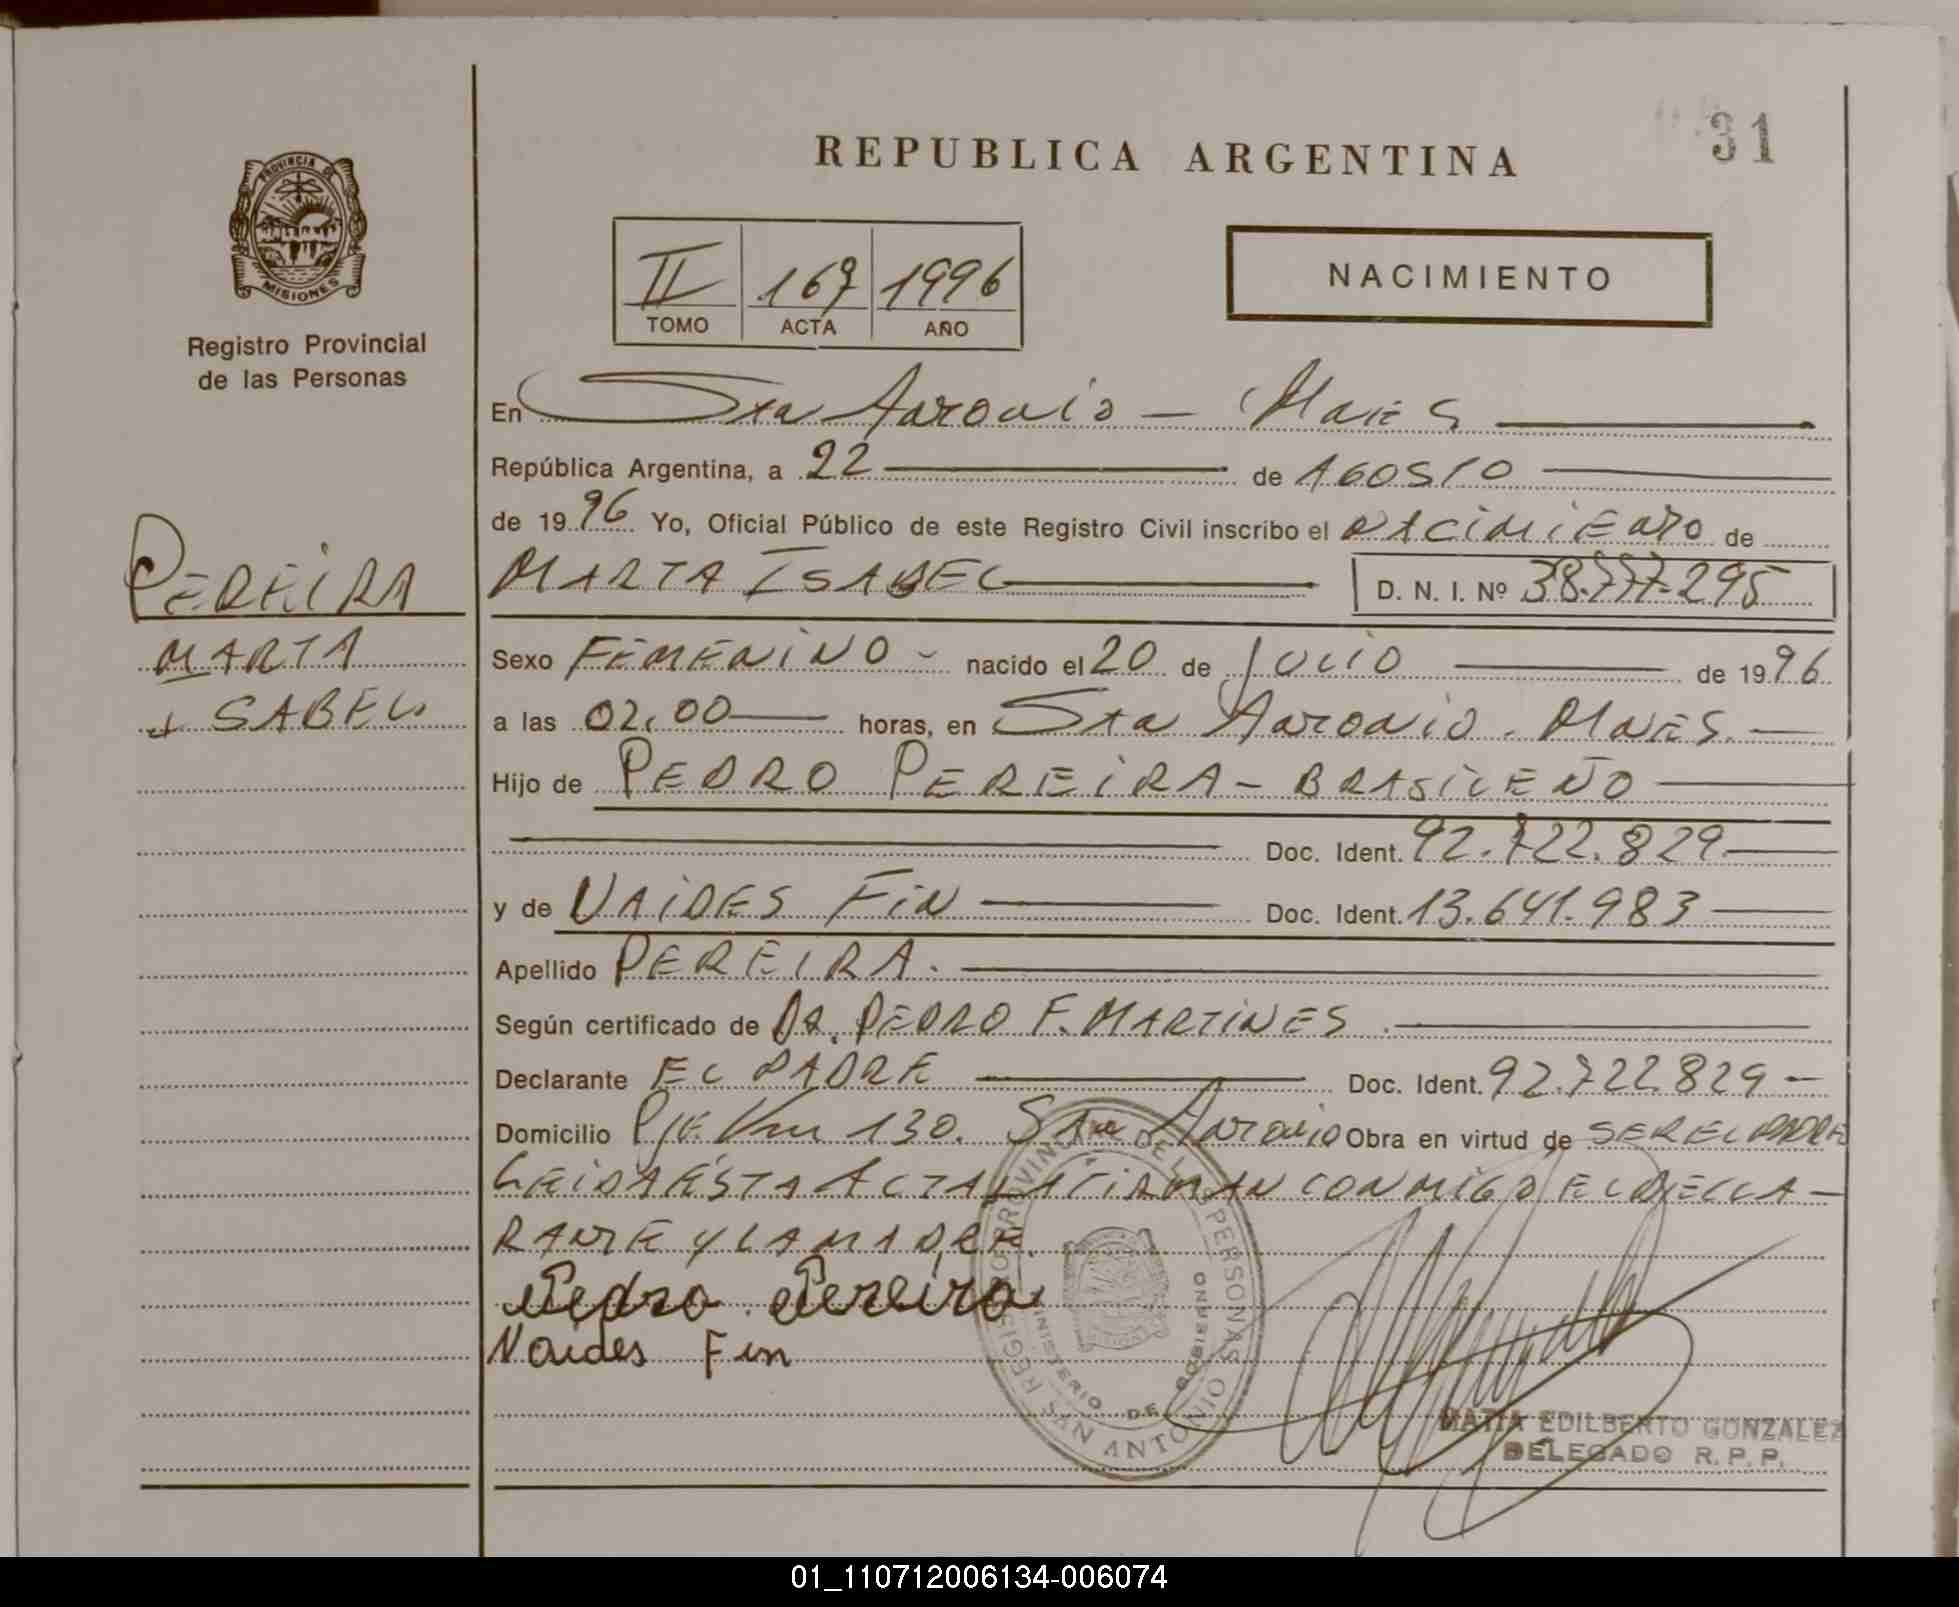 31
REPUBLICA ARGENTINA
PROVINCIA DE
MISIONES
Registro Provincial
de las Personas
II 167 1996
TOMO ACTA AÑO
NACIMIENTO
En Sta Antonio - Mnes
República Argentina, a 22 de AGOSTO
de 1996 Yo, Oficial Público de este Registro Civil inscribo el nacimiento de
MARTA ISABEL D. N. I. Nº 38.777.295
PEREIRA
MARTA
ISABEL
Sexo FEMENINO - nacido el 20 de Julio de 1996
a las 02,00 horas, en Sta Antonio. Mnes.
Hijo de PEDRO PEREIRA - BRASILEÑO
Doc. Ident. 92.722.829
y de NAIDES FIN Doc. Ident. 13.641.983
Apellido PEREIRA.
Según certificado de DR. PEDRO F. MARTINES
Declarante EL PADRE Doc. Ident. 92.722.829 -
Domicilio Pje. Km 130. Sta Antonio Obra en virtud de SER EL PADRE
LEIDA ESTA ACTA LA FIRMAN CONMIGO EL DECLA-
RANTE Y LA MADRE.
Pedro Pereira
Naides Fin
REGISTRO PROVINCIAL DE LAS PERSONAS
MINISTERIO DE GOBIERNO
SAN ANTONIO
MATIA EDILBERTO GONZALEZ
DELEGADO R. P. P.
01_110712006134-006074